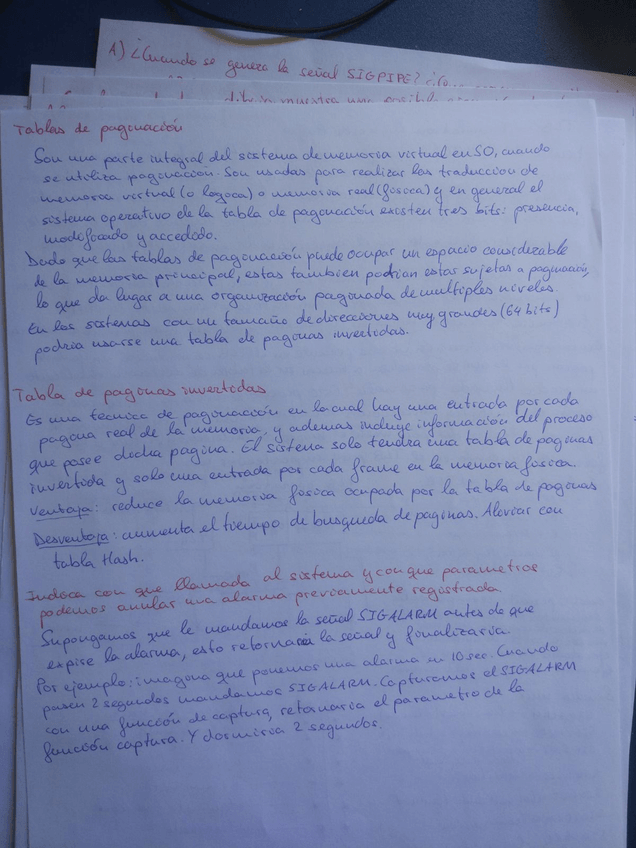 A) ¿Cuando se genera la señal SIGPIPE? ¿Co
Tablas de paginación
Son una parte integral del sistema de memoria virtual en SO, cuando
se utiliza paginación. Son usadas para realizar las traducción de
memoria virtual (o logica) a memoria real (fisica) y en general el
sistema operativo de la tabla de paginación existen tres bits: presencia,
modificado y accedido.
Dado que las tablas de paginación puede ocupar un espacio considerable
de la memoria principal, estas tambien podrian estar sujetas a paginación,
lo que da lugar a una organización paginada de multiples niveles.
En los sistemas con un tamaño de direcciones muy grandes (64 bits)
podria usarse una tabla de paginas invertidas.
Tabla de paginas invertidas
Es una tecnica de paginación en la cual hay una entrada por cada
pagina real de la memoria, y ademas incluye información del proceso
que posee dicha pagina. El sistema solo tendra una tabla de paginas
invertida y solo una entrada por cada frame en la memoria fisica.
Ventaja: reduce la memoria fisica ocupada por la tabla de paginas
Desventaja: aumenta el tiempo de busqueda de paginas. Aliviar con
tabla Hash.
Indica con que llamada al sistema y con que parametros
podemos anular una alarma previamente registrada.
Supongamos que le mandamos la señal SIGALARM antes de que
expire la alarma, esto retornaria la señal y finalizaria.
Por ejemplo: imagina que ponemos una alarma en 10 sec. Cuando
pasen 2 segundos mandamos SIGALARM. Capturamos el SIGALARM
con una función de captura, retornaria el parametro de la
función captura. Y dormiria 2 segundos.